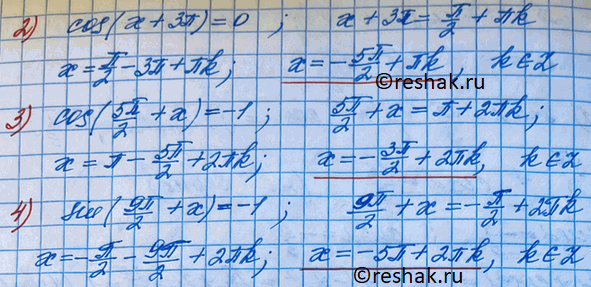 2) cos(x+3π)=0 ; x+3π=π/2+πk
x=π/2-3π+πk; x=-5π/2+πk, k∈Z
©reshak.ru
3) cos(5π/2+x)=-1 ; 5π/2+x=π+2πk;
x=π-5π/2+2πk; x=-3π/2+2πk, k∈Z
4) sin(9π/2+x)=-1 ; 9π/2+x=-π/2+2πk
x=-π/2-9π/2+2πk; x=-5π+2πk, k∈Z
©reshak.ru